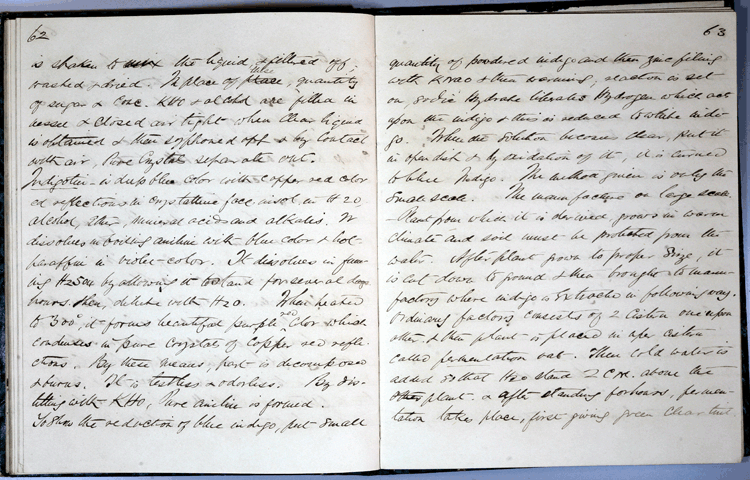 62
is shaken to mix the liquid & filtered off
washed & dried. In place of take quantity
of sugar & Conc. KHO & alcohol are filled in
vessel & closed air tight when clear liquid
is obtained & then syphoned off & by contact
with air, Pure Crystals separate out.
Indigotin - is deep blue color with copper red color
ed reflections in crystalline face insol. in H2O,
alcohol, ether, mineral acids and alkalis. It
dissolves in boiling aniline with blue color & hot
paraffin in violet color. It dissolves in fum-
ing H2SO4 by allowing it to stand for several
hours, then, dilute with H2O. When heated
to 300°, it forms beautiful purple red color which
condenses in pure crystals of copper red refle-
ctions. By these means, part is decomposed
& burns. It is tasteless & odorless. By dis-
tilling with KHO, Pure aniline is formed.
To show the reduction of blue indigo, put small
63
quantity of powdered indigo and then zinc filing
with & then warming, reaction is set
on, Sodic Hydrate liberates Hydrogen which act
upon the indigo & this is reduced to white indi-
go. When the solution become clear, put it
in open dish & by oxidation of it, it is turned
to blue Indigo. The method given is only the
small scale. The manufacture on large scale
- Plant from which it is derived, grows in warm
climate and soil must be protected from the
water. After plant grown to proper size, it
is cut down to ground & then brought to manu-
factory where indigo is Extracted in following way.
Ordinary factory consists of 2 Cistern one upon
other & then plant is placed in upper cistern
called fermentation vat. Then cold water is
added so that H2O stand 2 c.m. above the
plant. & after standing for hours, fermen-
tation takes place, first giving green clear tint